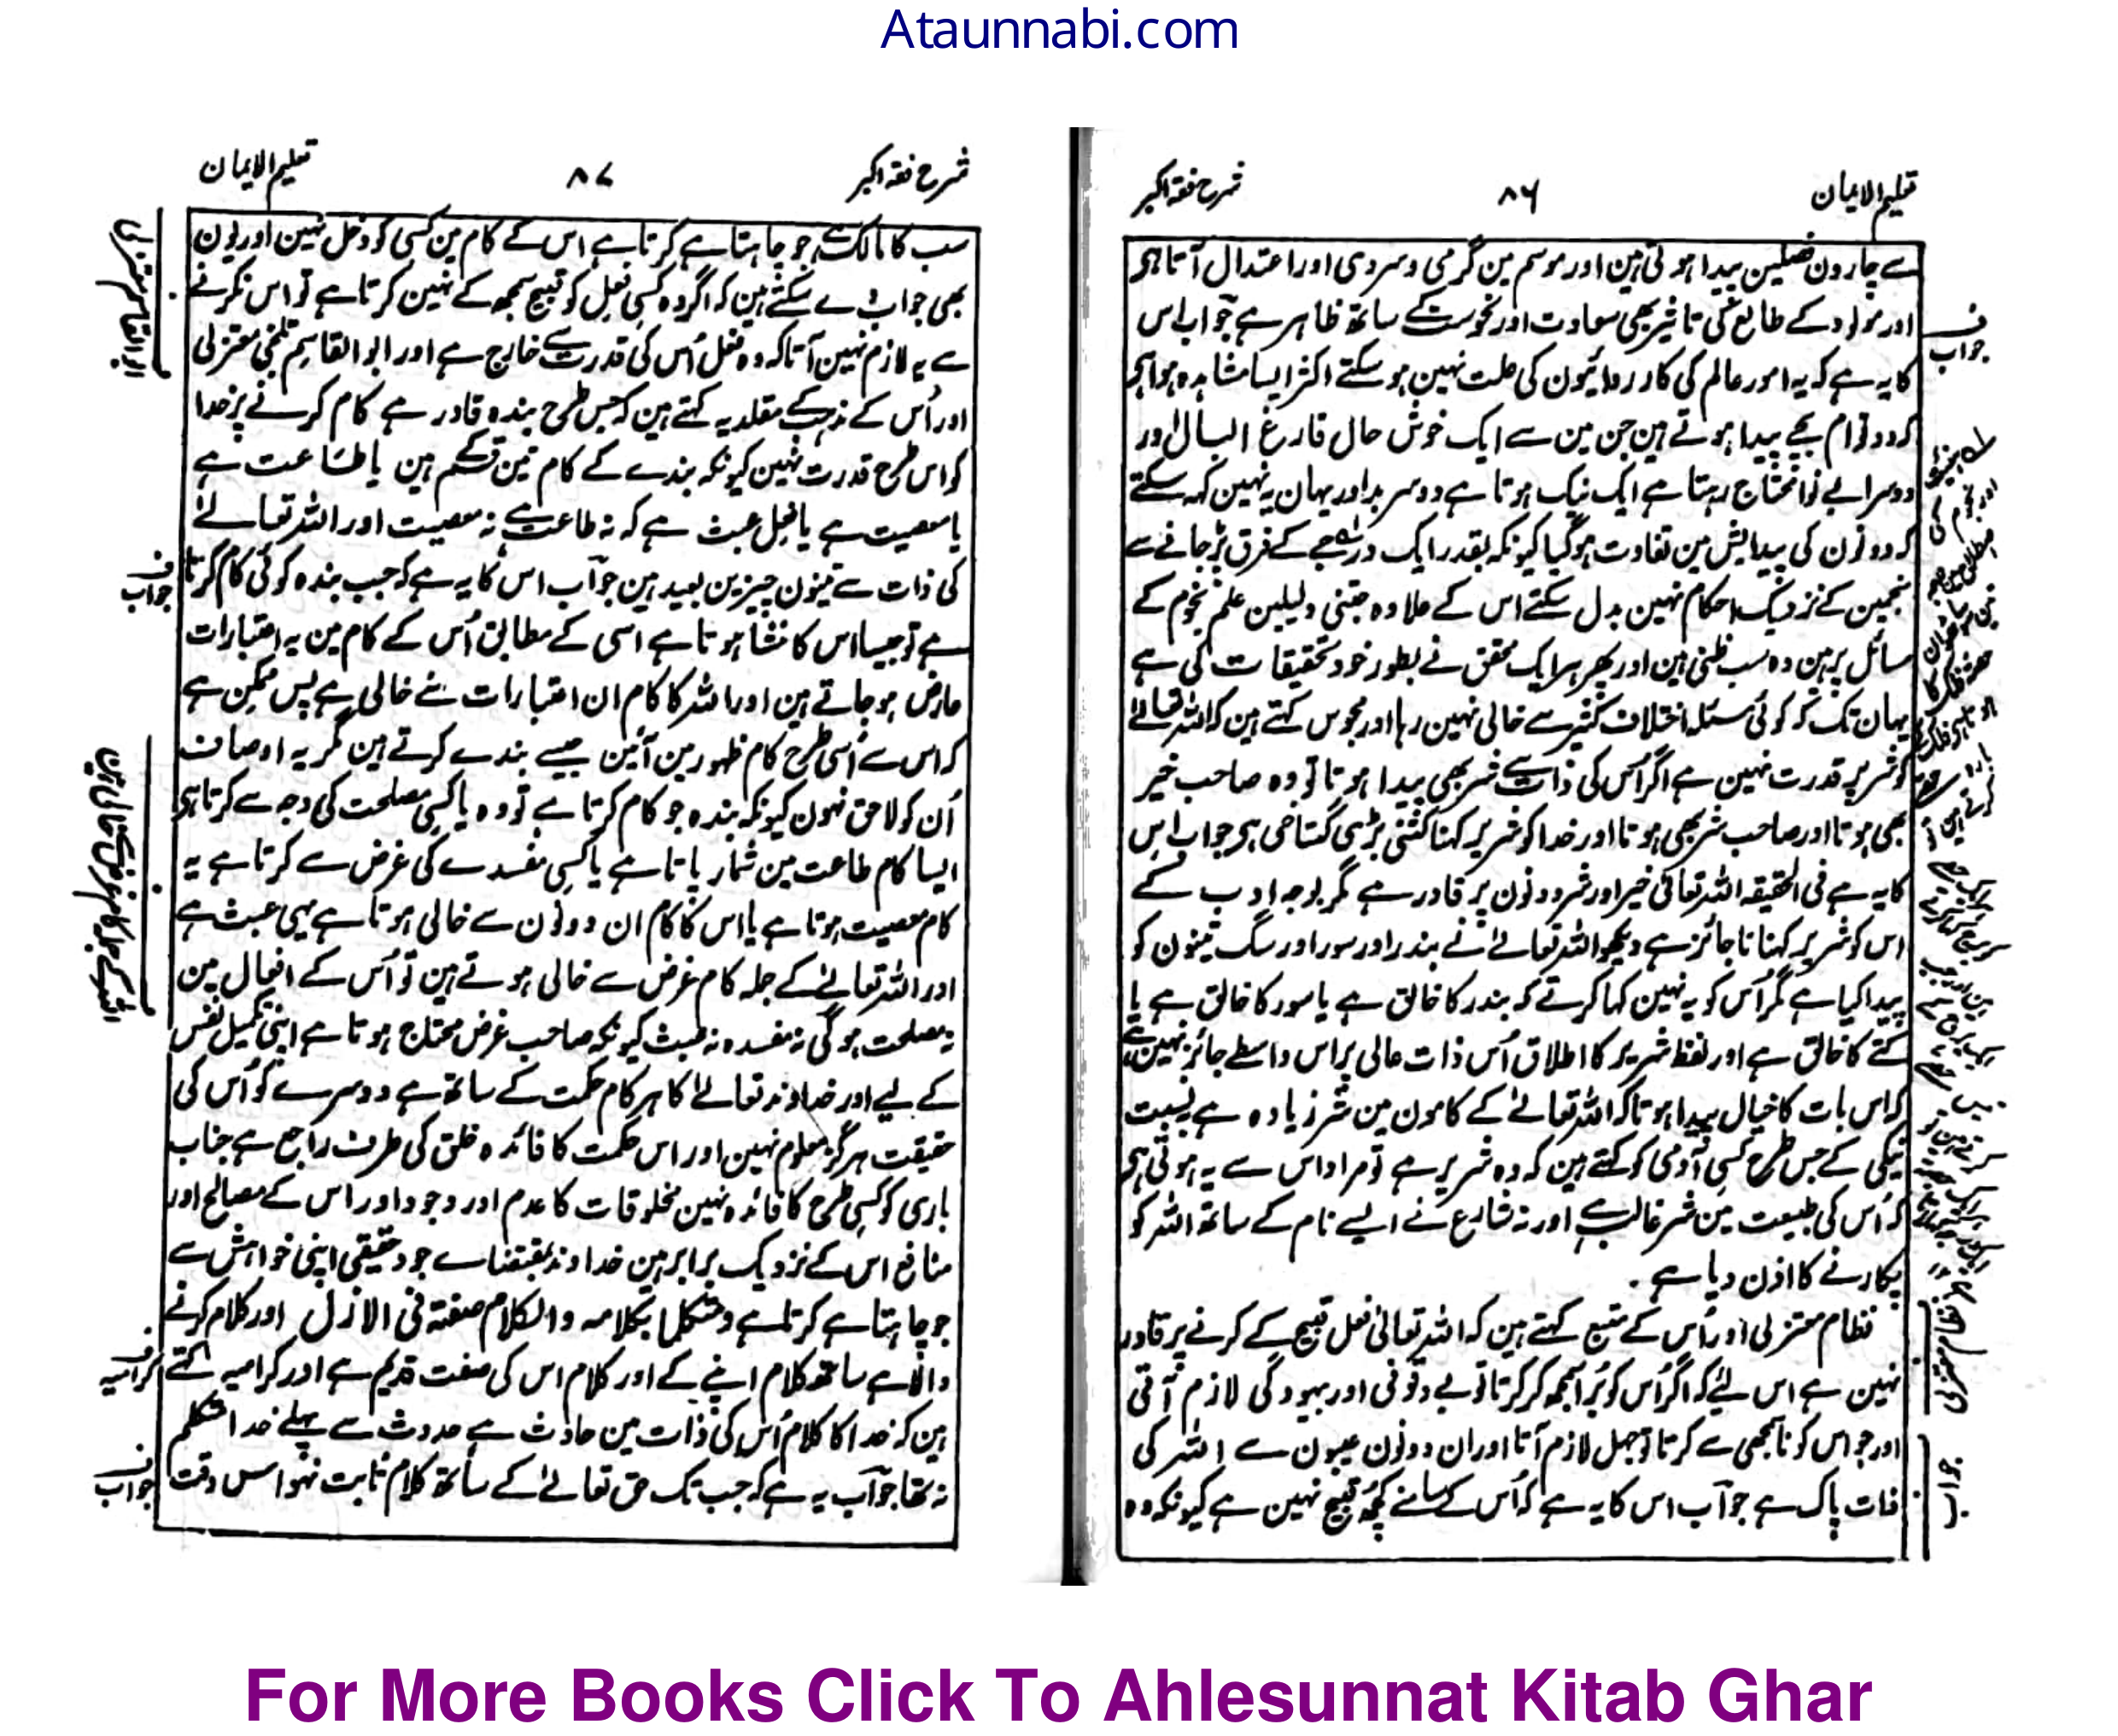 Ataunnabi.com
تعلیم الایمان
۸۶
شرح فقہ اکبر
سے چارون فصلین پیدا ہوتی ہین اور موسم مین گرمی وسردی اور اعتدال آتا ہی
اور مولود کے طالع کی تاثیر بھی سعادت اور نحوست کے ساتھ ظاہر ہے جواب اس
کا یہ ہے کہ یہ امور عالم کی کارروائیون کی علت نہین ہو سکتے اکثر ایسا مشاہدہ ہوا ہی
کہ دو توام بچے پیدا ہوتے ہین جن مین سے ایک خوش حال فارغ البال اور
دوسرا بے نوا محتاج رہتا ہے ایک نیک ہوتا ہے دوسر بد اور یہان یہ نہین کہہ سکتے
کہ دونون کی پیدایش مین تفاوت ہوگیا کیونکہ بقدر ایک درجے کے فرق پڑجانے سے
منجمین کے نزدیک احکام نہین بدل سکتے اس کے علاوہ جتنی دلیلین علم نجوم کے
مسائل پر ہین وہ سب ظنی ہین اور پھر ہر ایک محقق نے بطور خود تحقیقات کی ہے
یہان تک کہ کوئی مسئلہ اختلاف کثیر سے خالی نہین رہا اور مجوس کہتے ہین کہ اللہ تعالےٰ
کو شر پر قدرت نہین ہے اگر اس کی ذات سے شر بھی پیدا ہوتا تو وہ صاحب خیر
بھی ہوتا اور صاحب شر بھی ہوتا اور خدا کو شریر کہنا کتنی بڑی گستاخی ہی جواب اس
کا یہ ہے فی الحقیقہ اللہ تعالیٰ خیر اور شر دونون پر قادر ہے مگر بوجہ ادب کے
اس کو شریر کہنا ناجائز ہے دیکھو اللہ تعالےٰ نے بندر اور سور اور سگ تینون کو
پیدا کیا ہے مگر اس کو یہ نہین کہا کرتے کہ بندر کا خالق ہے یا سور کا خالق ہے یا
کتے کا خالق ہے اور لفظ شریر کا اطلاق اُس ذات عالی پر اس واسطے جائز نہین ہے
کہ اس بات کا خیال پیدا ہوتا کہ اللہ تعالےٰ کے کامون مین شر زیادہ ہے بہ نسبت
نیکی کے جس طرح کسی آدمی کو کہتے ہین کہ وہ شریر ہے تو مراد اس سے یہ ہوتی ہی
کہ اُس کی طبیعت مین شر غالب ہے اور نہ شارع نے ایسے نام کے ساتھ اللہ کو
پکارنے کا اذن دیا ہے.
نظام معتزلی اور اُس کے متبع کہتے ہین کہ اللہ تعالیٰ فعل قبیح کے کرنے پر قادر
نہین ہے اس لیے کہ اگر اُس کو بُرا سمجھ کر کرتا تو بے وقوفی اور بیہودگی لازم آتی
اور جو اس کو ناسمجھی سے کرتا تو جہل لازم آتا اور ان دونون عیبون سے اللہ کی
ذات پاک ہے جواب اس کا یہ ہے کہ اُس کے سامنے کچھ قبیح نہین ہے کیونکہ وہ
ف
جواب
نظام معتزلی
جواب
شرح فقہ اکبر
۸۷
تعلیم الایمان
سب کا مالک ہے جو چاہتا ہے کرتا ہے اس کے کام مین کسی کو دخل نہین اور یون
بھی جواب دے سکتے ہین کہ اگر وہ کسی فعل کو قبیح سمجھ کے نہین کرتا ہے تو اس نکرنے
سے یہ لازم نہین آتا کہ وہ فعل اُس کی قدرت سے خارج ہے اور ابو القاسم بلخی معتزلی
اور اُس کے مذہب کے مقلد یہ کہتے ہین کہ جس طرح بندہ قادر ہے کام کرنے پر خدا
کو اس طرح قدرت نہین کیونکہ بندے کے کام تین قسم ہین یا طاعت ہے
یا معصیت ہے یا فعل عبث ہے کہ نہ طاعت ہے نہ معصیت اور اللہ تعالےٰ
کی ذات سے تینون چیزین بعید ہین جواب اس کا یہ ہے کہ جب بندہ کوئی کام کرتا
ہے تو جیسا اس کا منشا ہوتا ہے اسی کے مطابق اُس کے کام مین یہ اعتبارات
عارض ہو جاتے ہین اور اللہ کا کام ان اعتبارات سے خالی ہے پس ممکن ہے
کہ اس سے اُسی طرح کام ظہور مین آئین جیسے بندے کرتے ہین مگر یہ اوصاف
اُن کو لاحق نہون کیونکہ بندہ جو کام کرتا ہے تو وہ یا کسی مصلحت کی وجہ سے کرتا ہی
ایسا کام طاعت مین شمار پاتا ہے یا کسی مفسدے کی غرض سے کرتا ہے یہ
کام معصیت ہوتا ہے یا اس کا کام ان دونون سے خالی ہوتا ہے یہی عبث ہے
اور اللہ تعالےٰ کے جملہ کام غرض سے خالی ہوتے ہین تو اُس کے افعال مین
نہ مصلحت ہوگی نہ مفسدہ نہ عبث کیونکہ صاحب غرض محتاج ہوتا ہے اپنی تکمیل نفس
کے لیے اور خداوند تعالےٰ کا ہر کام حکمت کے ساتھ ہے دوسرے کو اُس کی
حقیقت ہرگز معلوم نہین اور اس حکمت کا فائدہ خلق کی طرف راجع ہے جناب
باری کو کسی طرح کا فائدہ نہین مخلوقات کا عدم اور وجود اور اس کے مصالح اور
منافع اس کے نزدیک برابر ہین خداوند بمقتضاے جود حقیقی اپنی خواہش سے
جو چاہتا ہے کرتا ہے ومتکلما بکلامہ والکلام صفتہ فی الازل اور کلام کرنے
والا ہے ساتھ کلام اپنے کے اور کلام اس کی صفت قدیم ہے اور کرامیہ کہتے
ہین کہ خدا کا کلام اُس کی ذات مین حادث ہے حدوث سے پہلے خدا متکلم
نہ تھا جواب یہ ہے کہ جب تک حق تعالےٰ کے ساتھ کلام ثابت نہو اس وقت
ف
جواب
ف
کرامیہ
ف
جواب
For More Books Click To Ahlesunnat Kitab Ghar